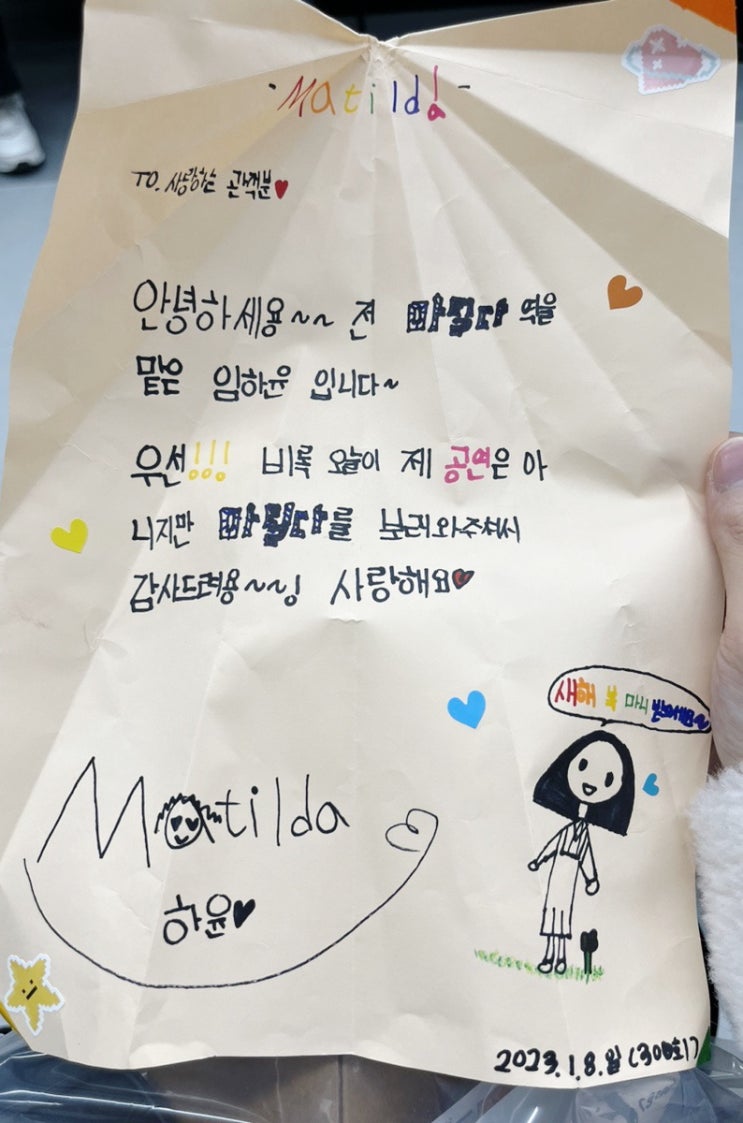 -Matilda-
TO. 사랑하는 관객분♥
안녕하세용~~ 전 마틸다 역을
맡은 임하윤 입니다~
우선!!! 비록 오늘이 제 공연은 아
니지만 마틸다를 보러와주셔서
감사드려용~~! 사랑해요♥
새해 복 마니
Matilda
하윤♥
2023.1.8.일 (300회!)